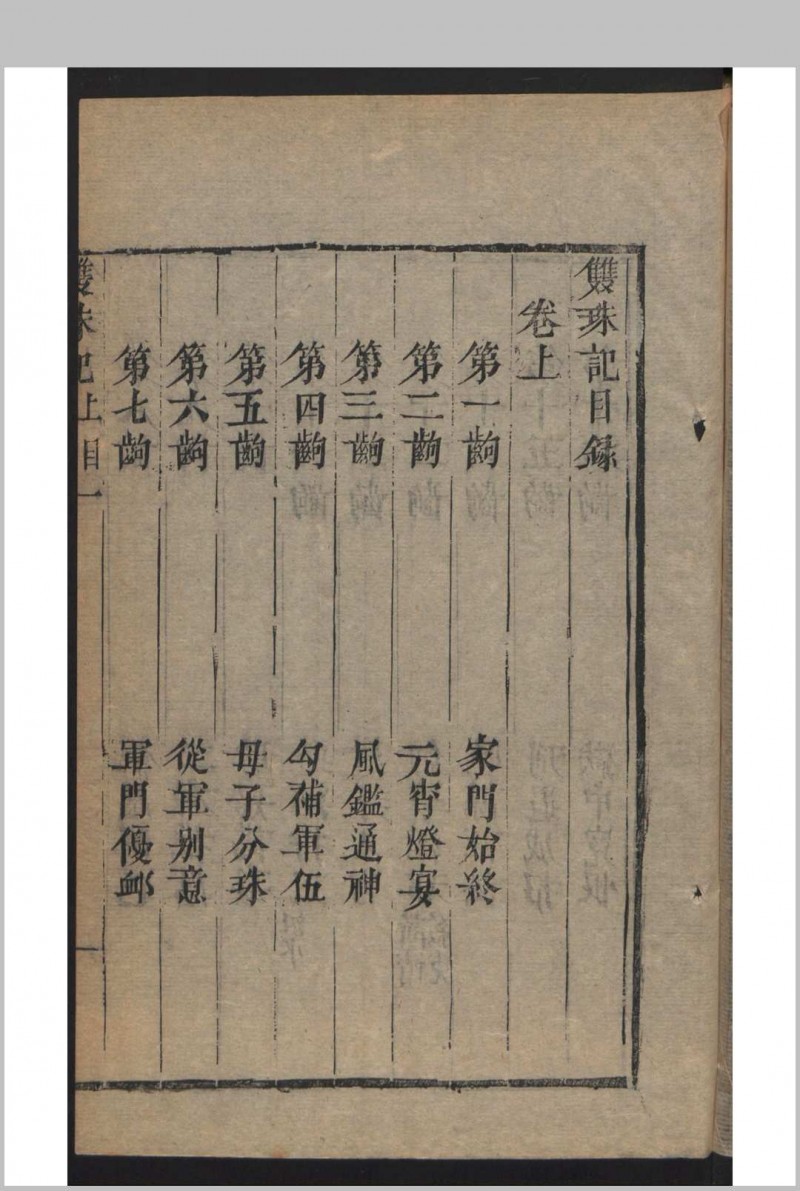 雙珠記目錄
卷上
第一齣 家門始終
第二齣 元宵燈宴
第三齣 風鑑通神
第四齣 勾補軍伍
第五齣 母子分珠
第六齣 從軍别意
第七齣 軍門優邺
雙珠記上目一